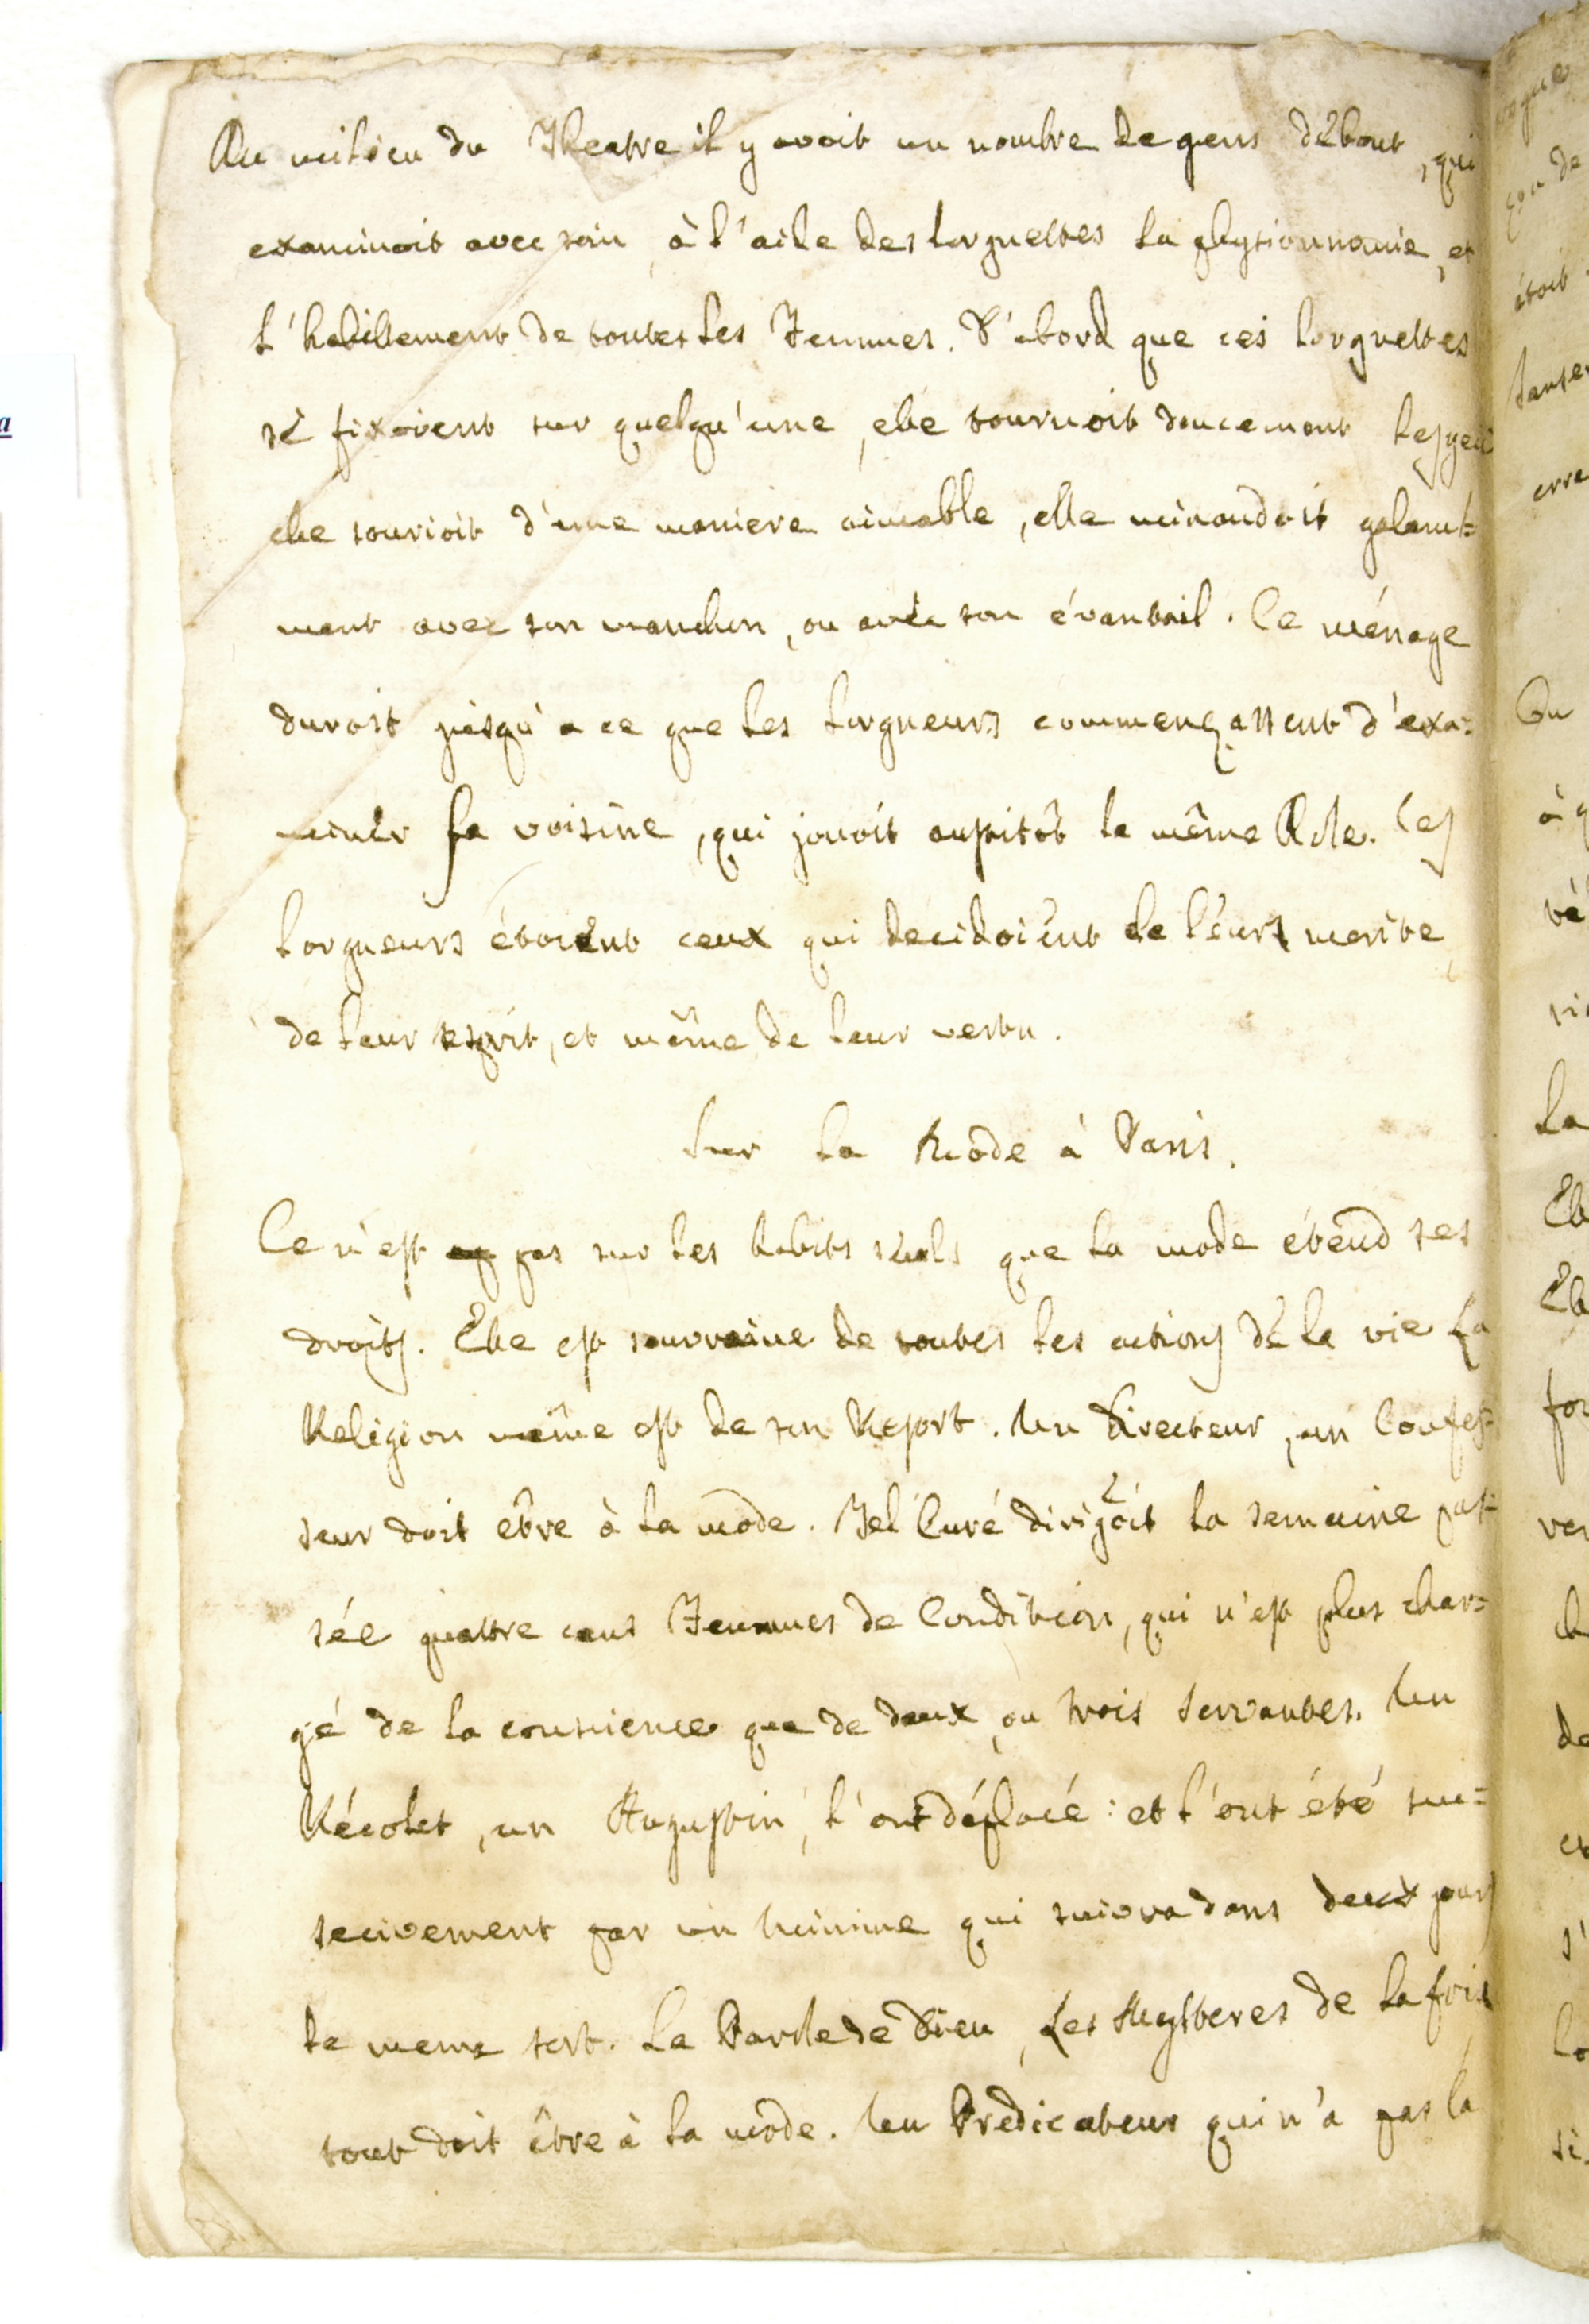 Au milieu du Theatre il y avoit un nombre de gens débout, qui
examinoit avec soin, à l'aide des lorgnettes la physionnomie, et
l'habillement de toutes les Femmes. D'abord que ces lorgnettes
sé fixoient sur quelqu'une, elle tournoit doucement les yeux
elle sourioit d'une maniere aimable, elle minaudoit galam=
ment avec son manchon, ou avéc son évantail. Ce ménage
duroit jusqu'a ce que les lorgneurs commençassent d'exa=
minér sa voisine, qui jouoit aussitôt le même Role. Ces
lorgneurs étoient ceux qui decidoient de leurs merite,
de leur esprit, et même de leur vertu.
Sur la Mode à Paris.
Ce n'est pas sur les habits seuls que la mode étend ses
droits. Elle est souvraine de toutes les actions dé la vie La
Religion même est de son Resort. Un Directeur, un Confes=
seur doit etre à la mode. Tel Curé dirigeoit la semaine pas=
sée quattre cens Femmes de Condition, qui n'est plus char=
gé de la conscience que de deux, ou trois Servantes. Un
Récolet, un Augustin, l'ont déplacé: et l'ont été suc=
secivement par un Minime qui suivra dans deux jours
le meme sort. La Parole de Dieu, Les Mysteres de la foix
tout doit être à la mode. Un Prédicateur qui n'a pas la